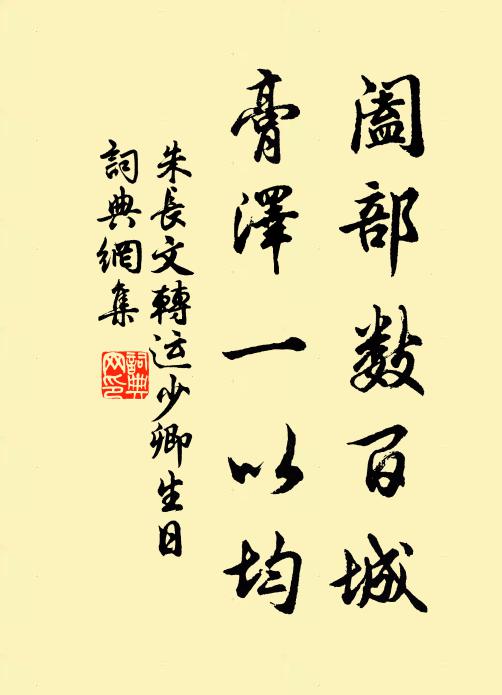 阖部数百城
膏澤一以均
朱長文轉运少卿生日
詞典網集
詞典
网印